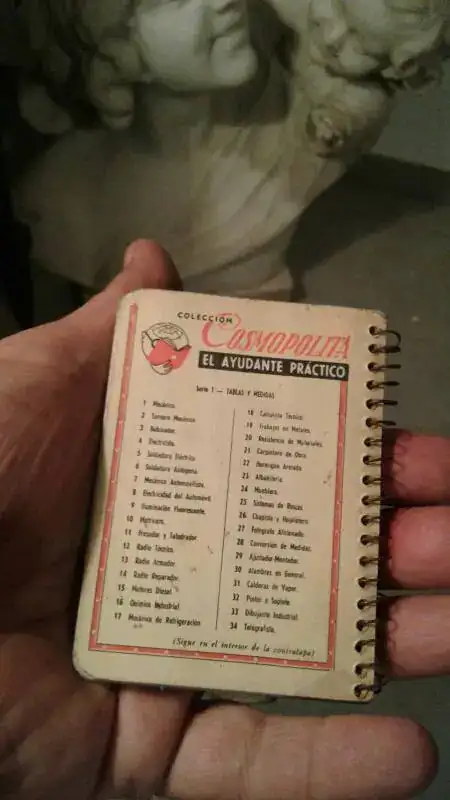 COLECCION
COSMOPOLITA
EL AYUDANTE PRÁCTICO
Serie 1 — TABLAS Y MEDIDAS
1 Mecánico.
2 Tornero Mecánico
3 Bobinador.
4 Electricista.
5 Soldadura Eléctrica
6 Soldadura Autógena.
7 Mecánico Automovilista.
8 Electricidad del Automóvil.
9 Iluminación Fluorescente.
10 Matricero.
11 Fresador y Taladrador.
12 Radio Técnico.
13 Radio Armador.
14 Radio Reparador.
15 Motores Diesel.
16 Química Industrial
17 Mecánico de Refrigeración
18 Calculista Técnico.
19 Trabajos en Metales.
20 Resistencia de Materiales.
21 Carpintero de Obra.
22 Hormigón Armado
23 Albañilería
24 Mueblero.
25 Sistemas de Roscas.
26 Chapista y Hojalatero.
27 Fotógrafo Aficionado.
28 Conversión de Medidas.
29 Ajustador-Montador.
30 Alambres en General.
31 Calderas de Vapor.
32 Pintor a Soplete.
33 Dibujante Industrial.
34 Telegrafista.
(Sigue en el interior de la contratapa)